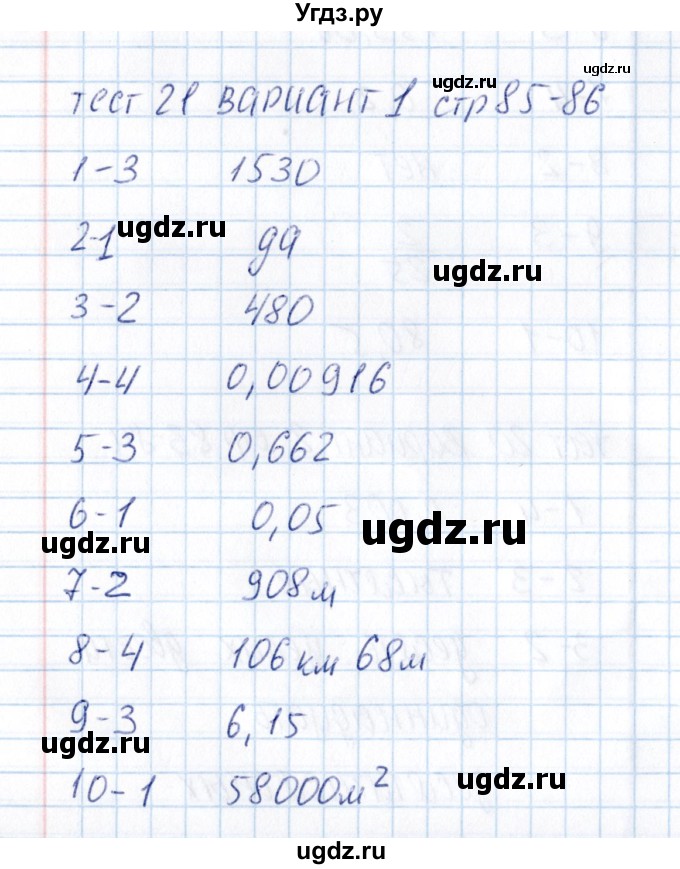 Угдз.ру
ugdz.ru
ugdz.ru
тест 21 вариант 1 стр 85-86
1-3 1530
2-1 ugdz.ru да
ugdz.ru
3-2 480
4-4 0,00916
5-3 0,662
6-1 0,05 ugdz.ru
ugdz.ru
7-2 908м
8-4 106 км 68м
9-3 6,15
ugdz.ru
10-1 58000м² ugdz.ru
ugdz.ru